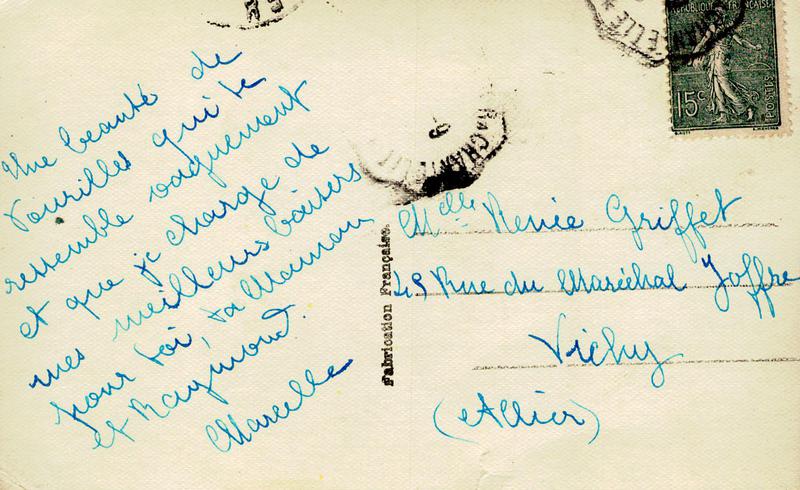 Une beauté de
Vouzilles qui te
ressemble vaguement
et que je charge de
mes meilleurs baisers
pour toi, ta Maman
et Raymond.
Marcelle
Fabrication Française.
REPUBLIQUE FRANÇAISE
15c
POSTES
CHANTELLE
Mdlle Renée Griffet
49 Rue du Maréchal Joffre
Vichy
(Allier)